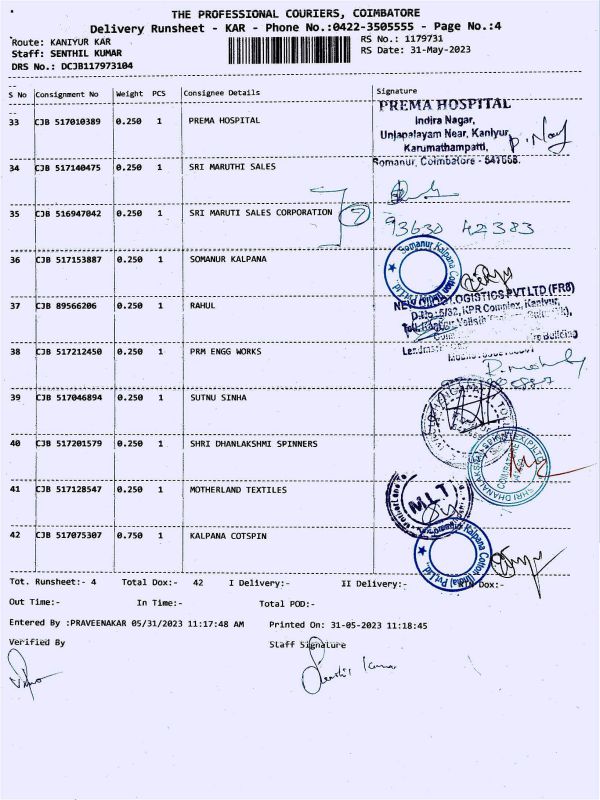 THE PROFESSIONAL COURIERS, COIMBATORE
Delivery Runsheet - KAR - Phone No.:0422-3505555 - Page No.:4
Route: KANIYUR KAR
RS No.: 1179731
Staff: SENTHIL KUMAR
RS Date: 31-May-2023
DRS No.: DCJB117973104
S No Consignment No Weight PCS Consignee Details Signature
33 CJB 517010389 0.250 1 PREMA HOSPITAL
PREMA HOSPITAL
Indira Nagar,
Unjapalayam Near, Kaniyur,
Karumathampatti,
Somanur, Coimbatore - 641668.
34 CJB 517140475 0.250 1 SRI MARUTHI SALES
35 CJB 516947042 0.250 1 SRI MARUTI SALES CORPORATION
93630 42383
36 CJB 517153887 0.250 1 SOMANUR KALPANA
Somanur Kalpana Cotton
37 CJB 89566206 0.250 1 RAHUL
LOGISTICS PVT LTD (FR8)
D.No:5/32, KPR Complex, Kaniyur,
38 CJB 517212450 0.250 1 PRM ENGG WORKS
39 CJB 517046894 0.250 1 SUTNU SINHA
40 CJB 517201579 0.250 1 SHRI DHANLAKSHMI SPINNERS
41 CJB 517128547 0.250 1 MOTHERLAND TEXTILES
M.L.T
42 CJB 517075307 0.750 1 KALPANA COTSPIN
Kalpana Cotton (India) Pvt Ltd.,
Tot. Runsheet:- 4 Total Dox:- 42 I Delivery:- II Delivery:- RTN Dox:-
Out Time:- In Time:- Total POD:-
Entered By :PRAVEENAKAR 05/31/2023 11:17:48 AM Printed On: 31-05-2023 11:18:45
Verified By Staff Signature